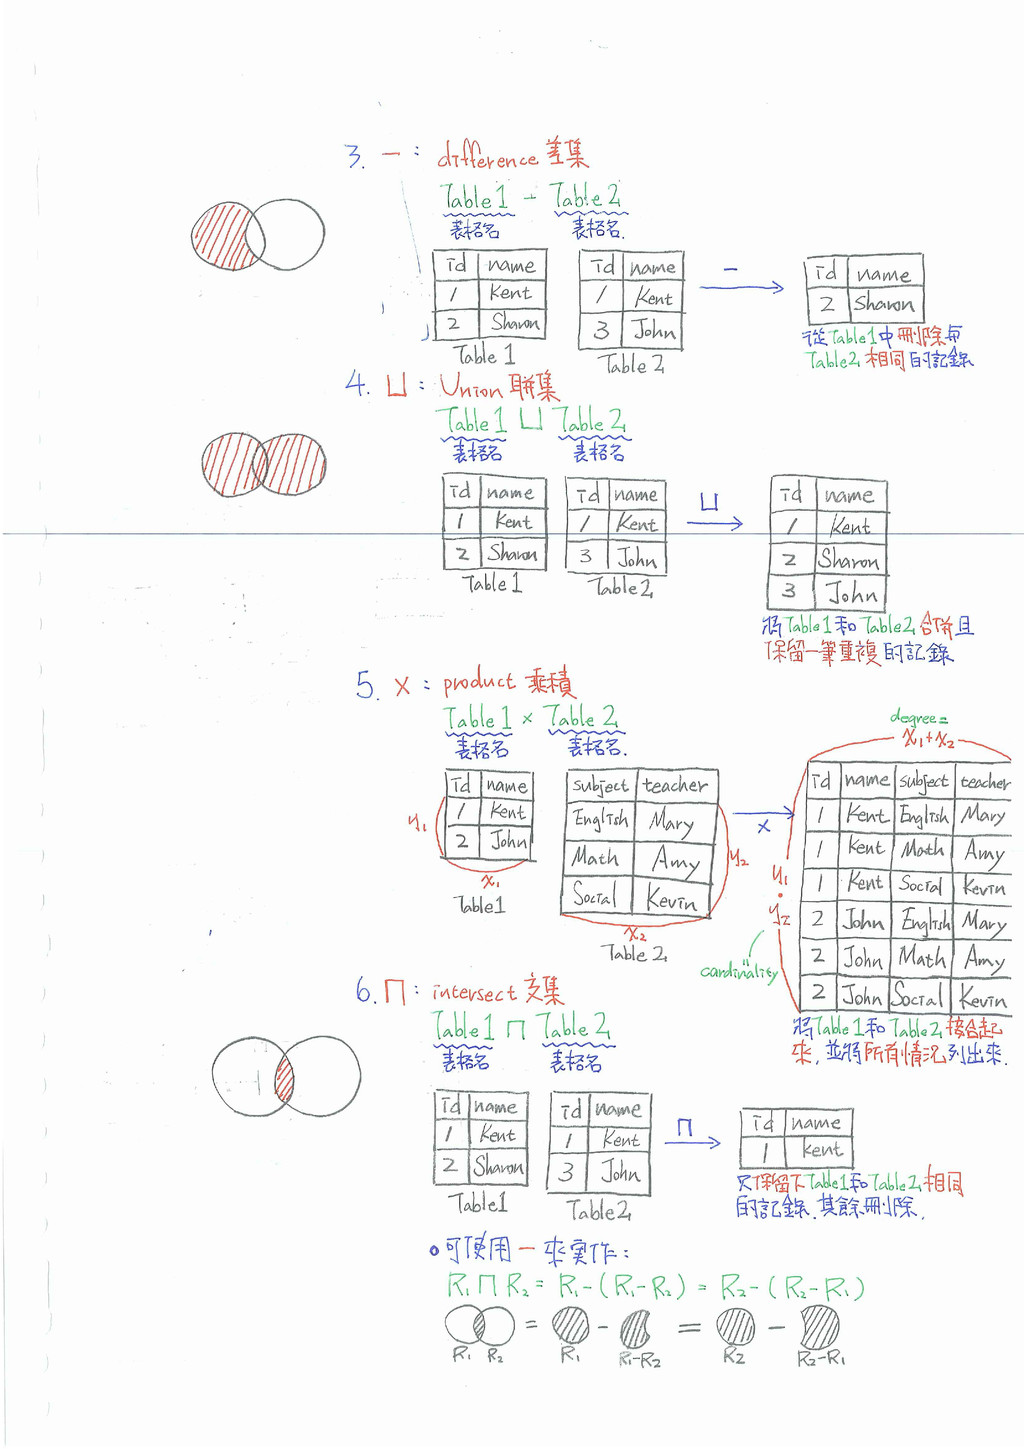 3. − : difference 差集
Table 1 − Table 2
表格名 表格名.
id name
1 Kent
2 Sharon
Table 1
id name
1 Kent
3 John
Table 2
−
id name
2 Sharon
從Table1中刪除與
Table2相同的記錄
4. ⊔ : Union 聯集
Table 1 ⊔ Table 2
表格名 表格名
id name
1 Kent
2 Sharon
Table 1
id name
1 Kent
3 John
Table 2
⊔
id name
1 Kent
2 Sharon
3 John
將Table1和Table2合併且
保留一筆重複的記錄
5. × : product 乘積
Table 1 × Table 2
表格名 表格名.
id name
1 Kent
2 John
y₁
x₁
Table1
subject teacher
English Mary
Math Amy
Social Kevin
y₂
x₂
Table 2
×
degree=
x₁+x₂
id name subject teacher
1 Kent English Mary
1 Kent Math Amy
1 Kent Social Kevin
2 John English Mary
2 John Math Amy
2 John Social Kevin
y₁
·
y₂
=
cardinality
將Table1和Table2接合起
來,並將所有情況列出來.
6. ⊓ : intersect 交集
Table 1 ⊓ Table 2
表格名 表格名
id name
1 Kent
2 Sharon
Table1
id name
1 Kent
3 John
Table2
⊓
id name
1 Kent
只保留下Table1和Table2相同
的記錄.其餘刪除.
•可使用−來實作:
R₁ ⊓ R₂ = R₁−(R₁−R₂) = R₂−(R₂−R₁)
= − = −
R₁ R₂ R₁ R₁−R₂ R₂ R₂−R₁